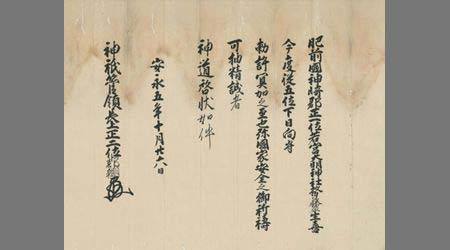 肥前國神埼郡正一位若宮大明神社務藤主喜
今度従五位下日向守
勅許冥加之至也弥國家安全之御祈祷
可抽精誠者
神道啓状如件
安永五年十月廿六日
神祇管領長上正二位